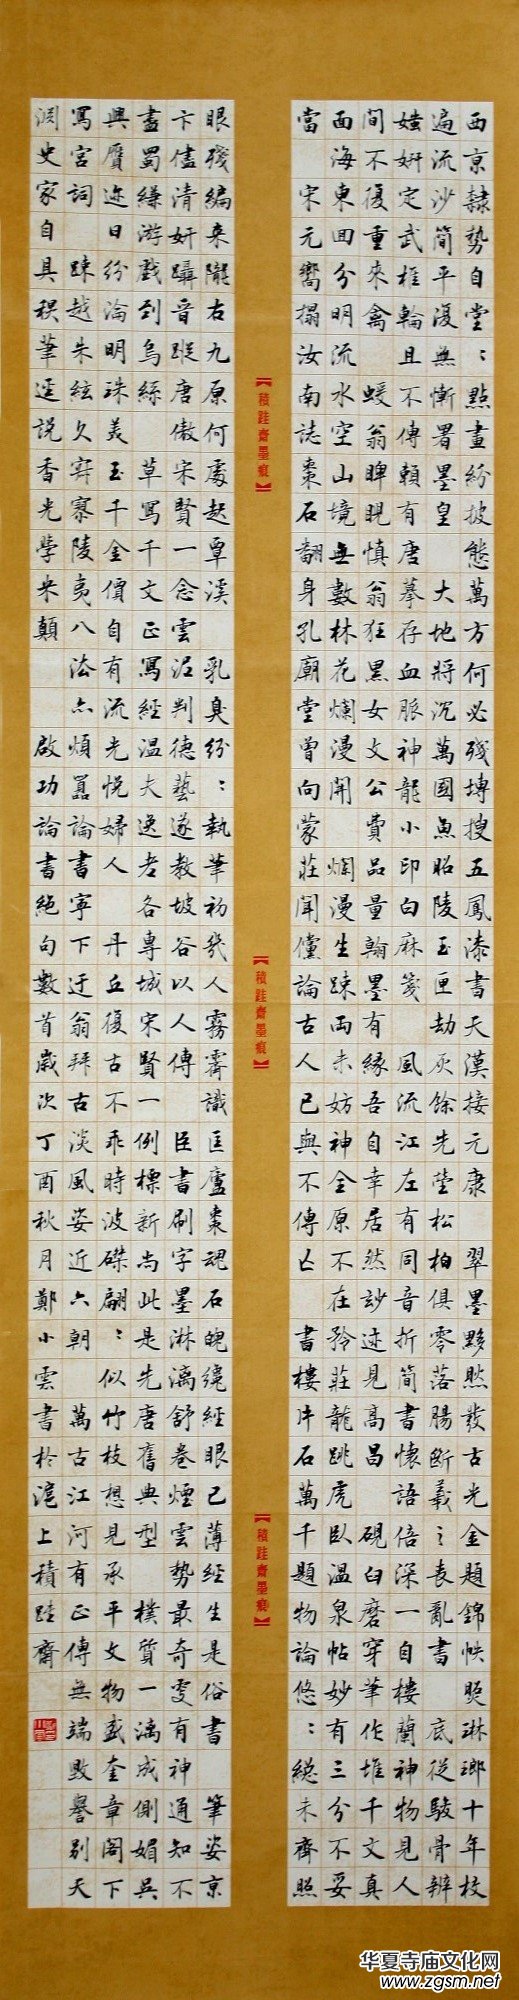 西京隸勢自堂〻點畫紛披態萬方何必殘塼搜五鳳漆書天漢接元康 翠墨黟然發古光金題錦帙照琳瑯十年校
遍流沙簡平復無慚署墨皇 大地將沉萬國魚昭陵玉匣劫灰餘先塋松柏俱零落腸斷羲〻喪亂書 底從駿骨辨
媸妍定武椎輪且不傳賴有唐摹存血脈神龍小印白麻箋 風流江左有同音折簡書懷語倍深一自樓蘭神物見人
間不復重來禽 蝯翁睥睨慎翁狂黑女文公費品量翰墨有緣吾自幸居然妙迹見高昌 硯臼磨穿筆作堆千文真
面海東回分明流水空山境無數林花爛漫開 爛漫生疎兩未妨神全原不在矜莊龍跳虎臥溫泉帖妙有三分不妥
當 宋元嚮搨汝南誌棗石翻身孔廟堂曾向蒙莊聞儻論古人已與不傳亡 書樓片石萬千題物論悠〻總未齊照
【積跬齋墨痕】
【積跬齋墨痕】
【積跬齋墨痕】
眼殘編來隴右九原何處起覃溪 乳臭紛〻執筆初幾人霧霽識匡廬棗魂石魄纔經眼已薄經生是俗書 筆姿京
卞儘清妍躡晉蹤唐傲宋賢一念雲泥判德藝遂教坡谷以人傳 臣書刷字墨淋漓舒卷煙雲勢最奇更有神通知不
盡蜀縑游戲到烏絲 草寫千文正寫經溫夫逸老各專城宋賢一例標新尚此是先唐舊典型 樸質一漓成側媚吳
興贗迹日紛淪明珠美玉千金價自有流光悅婦人 丹丘復古不乖時波磔翩〻似竹枝想見承平文物盛奎章閣下
寫宮詞 疎越朱絃久寂寥陵夷八法亦煩囂論書寧下迂翁拜古淡風姿近六朝 萬古江河有正傳無端毀譽別天
淵史家自具秋筆逕說香光學米顛 啟功論書絕句數首歲次丁酉秋月鄭小雲書於滬上積跬齋
华夏寺庙文化网
www.zgsm.net